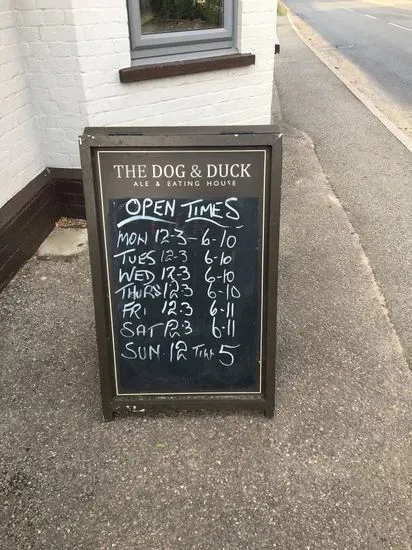 THE DOG & DUCK
ALE & EATING HOUSE
OPEN TIMES
MON 12-3 - 6-10
TUES 12-3 6-10
WED 12-3 6-10
THURS 12-3 6-10
FRI 12-3 6-11
SAT 12-3 6-11
SUN 12 TILL 5